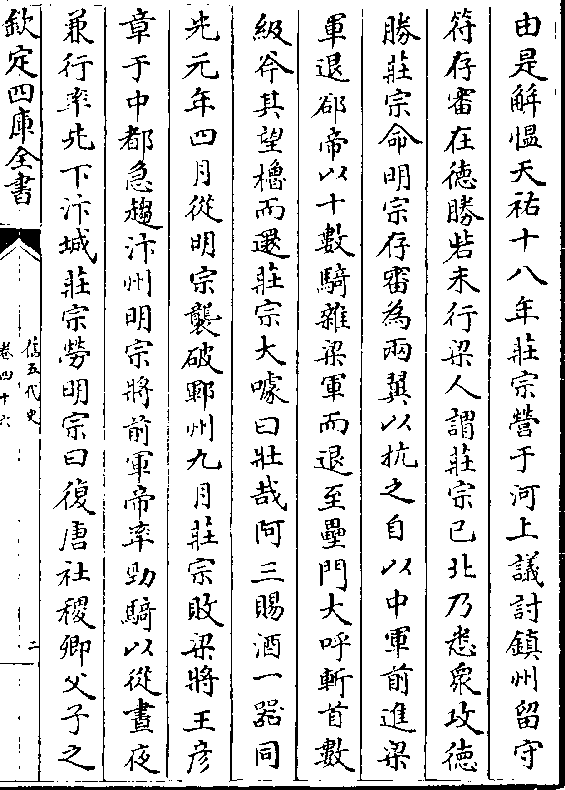 由是解愠天祐十八年莊宗營于河上議討鎮州留守
符存審在德勝砦未行梁人謂莊宗已北乃悉衆攻德
勝莊宗命明宗存審為兩翼以抗之自以中軍前進梁
軍退郤帝以十數騎雜梁軍而退至壘門大呼斬首數
級斧其望櫓而還莊宗大噱曰壯哉阿三賜酒一器同
光元年四月從明宗襲破鄆州九月莊宗敗梁將王彦
章于中都急趨汴州明宗將前軍帝率勁騎以從晝夜
兼行率先下汴城莊宗勞明宗曰復唐社稷卿父子之
欽定四庫全書
舊五代史
卷四十六
二